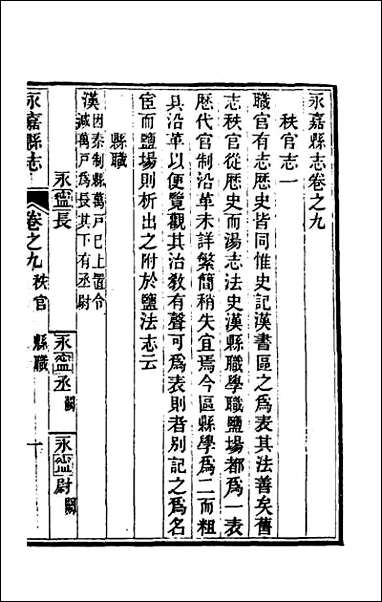 永嘉縣志卷之九
秩官志一
職官有志歷史皆同惟史記漢書區之爲表其法善矣舊
志秩官從歷史而湯志法史漢縣職學職鹽場都爲一表
歷代官制沿革未詳繁簡稍失宜焉今區縣學爲二而粗
具沿革以便覽觀其治教有聲可爲表則者別記之爲名
宦而鹽場則析出之附於鹽法志云
縣職
漢因秦制縣萬戸已上置令
減萬戸爲長其下有丞尉
永寧長
永寧丞闕
永寧尉闕
永嘉縣志
卷之九秩官 縣職
一